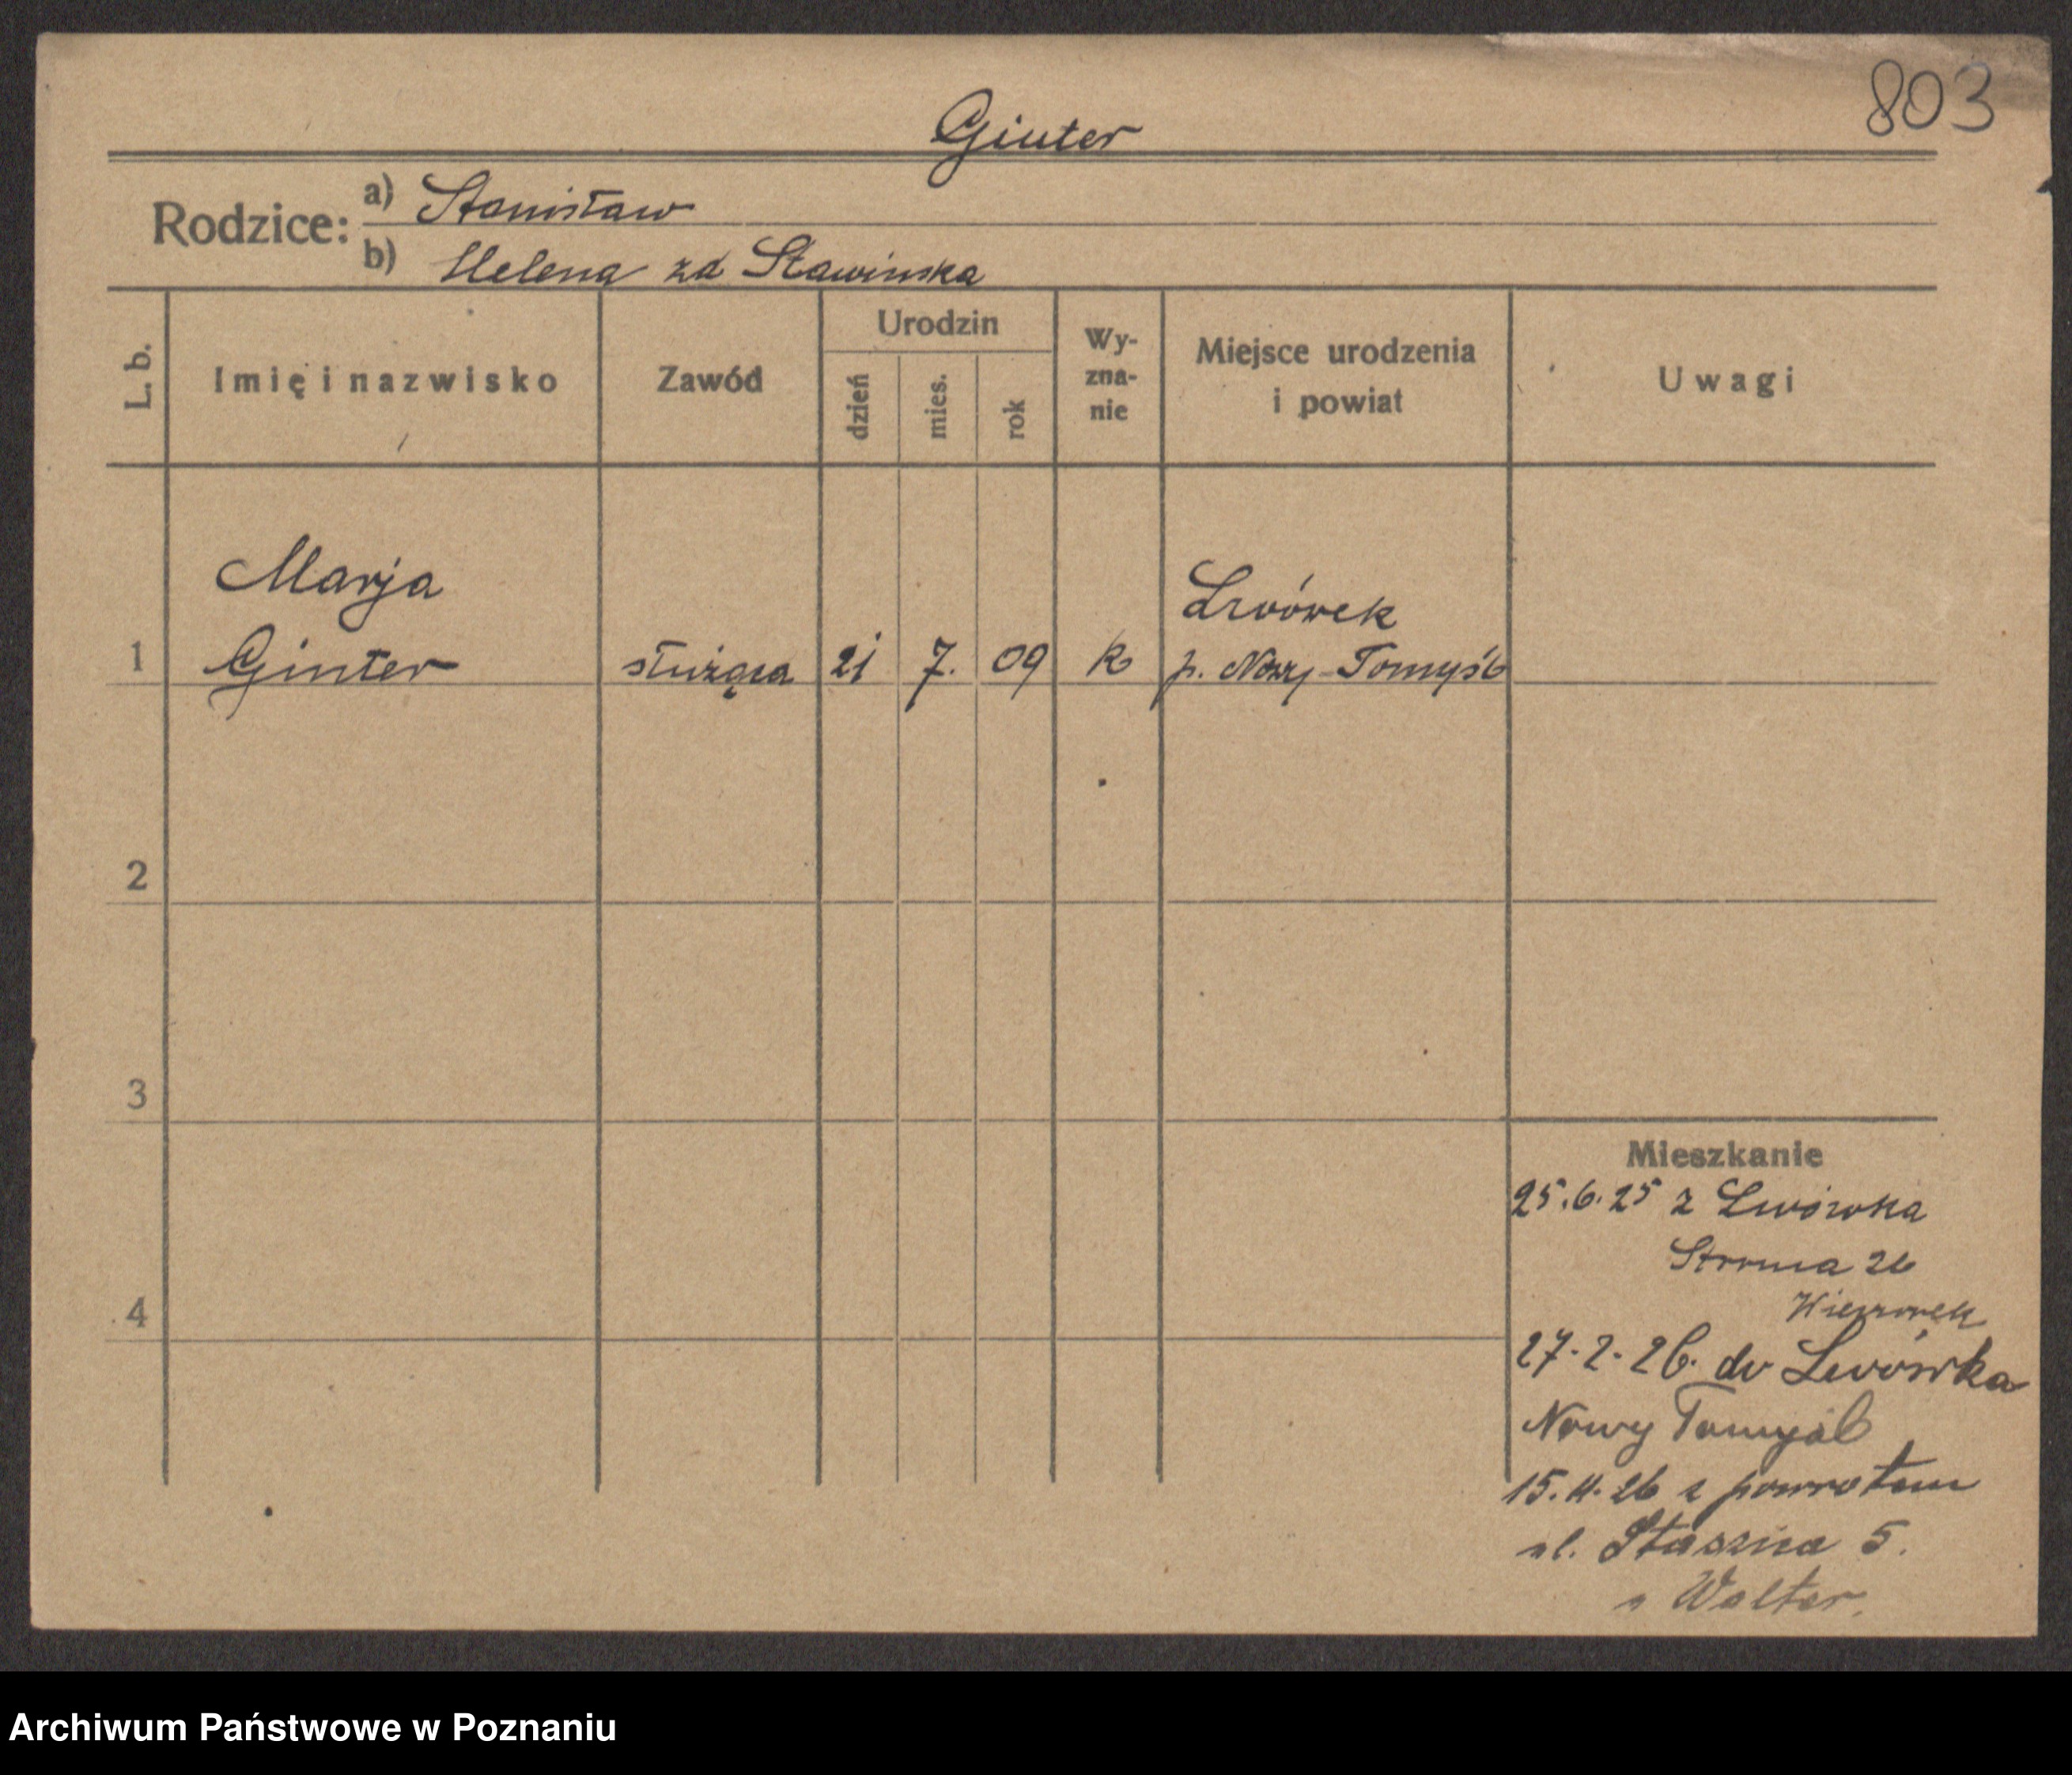 803
Ginter
Rodzice:
a) Stanisław
b) Helena zd Sławinska
L. b.
Imię i nazwisko
Zawód
Urodzin
dzień
mies.
rok
Wy-
zna-
nie
Miejsce urodzenia
i powiat
Uwagi
Marja
Lwówek
1 Ginter służąca 21 7. 09 k p. Nowy-Tomyśl
2
3
4
Mieszkanie
25.6.25 z Lwówka
Stroma 26
27.2.26. do Lwówka
Nowy Tomyśl
15.4.26 z powrotem
ul. Staszica 5.
Walter.
Archiwum Państwowe w Poznaniu